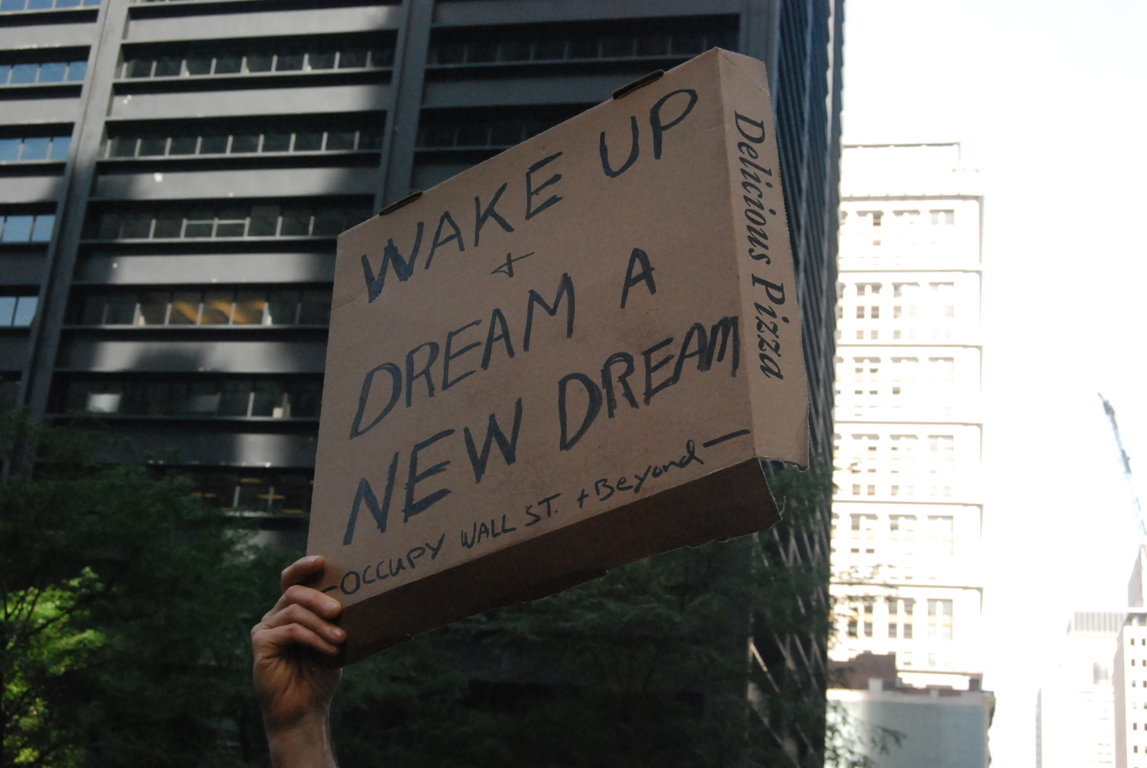 WAKE UP
+
DREAM A
NEW DREAM
- OCCUPY WALL ST. + Beyond -
Delicious Pizza